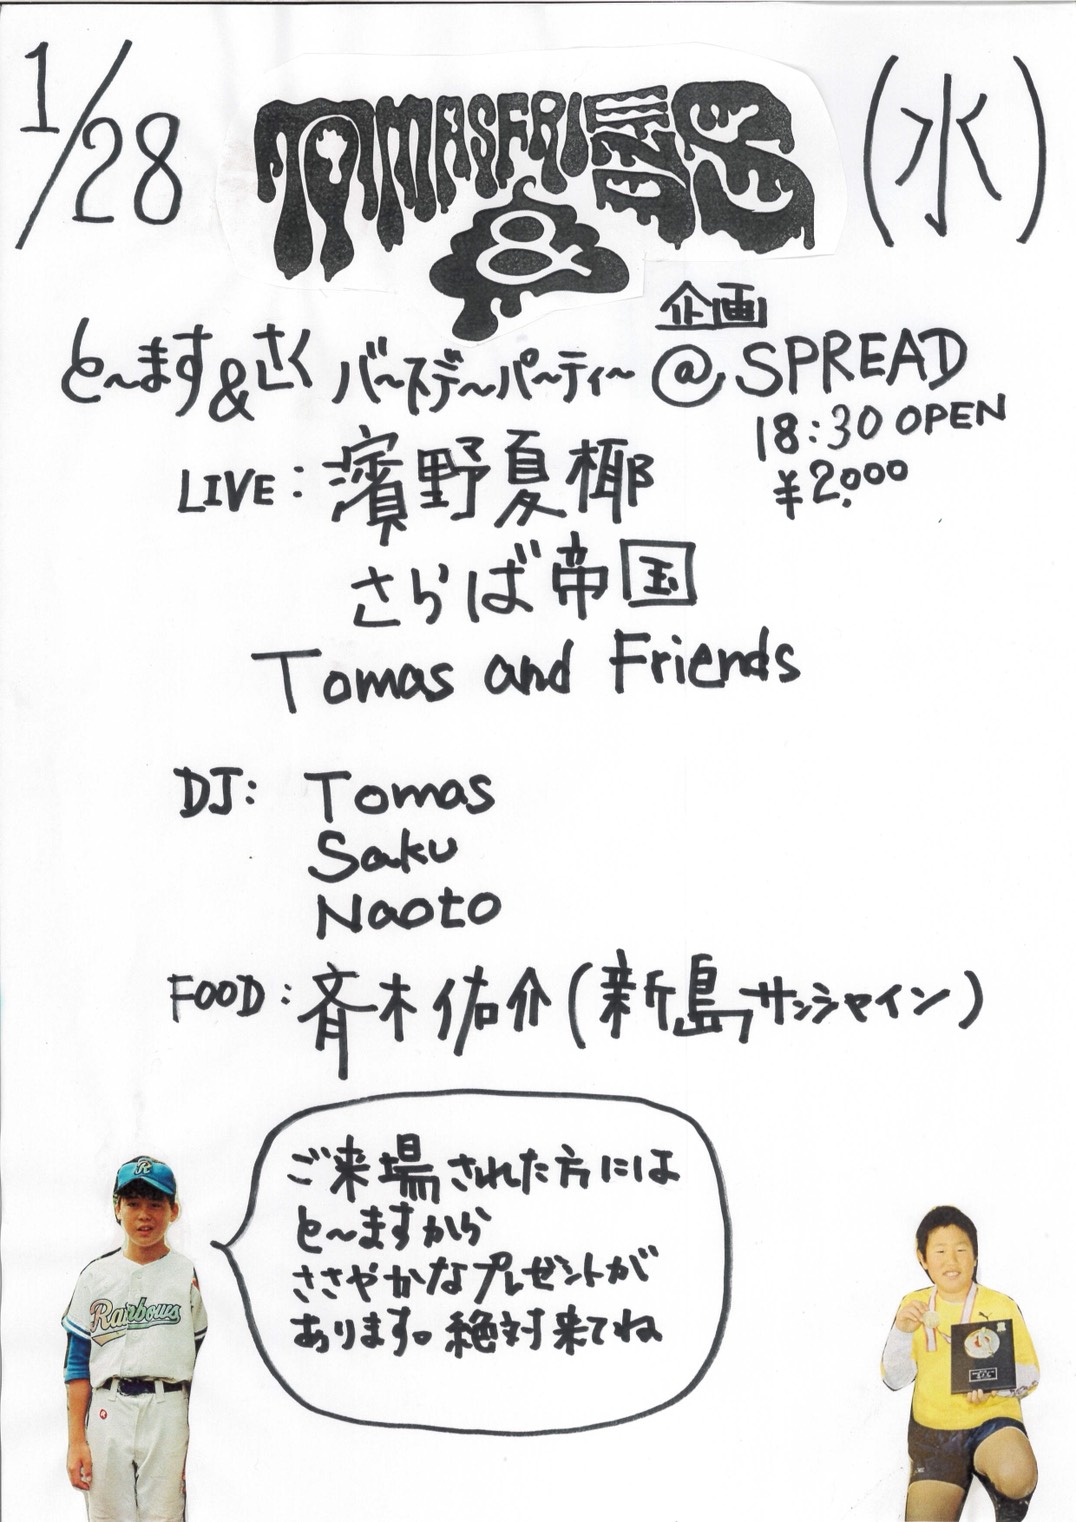 1/28
TOMAS & FRIENDS
(水)
企画
と〜ます&さく バースデーパーティー @ SPREAD
18:30 OPEN
¥2,000
LIVE: 濱野夏椰
さらば帝国
Tomas and Friends
DJ: Tomas
Saku
Naoto
FOOD: 斉木佑介(新島サンシャイン)
ご来場された方には
と〜ますから
ささやかなプレゼントが
あります。絶対来てね
R
Rainbows